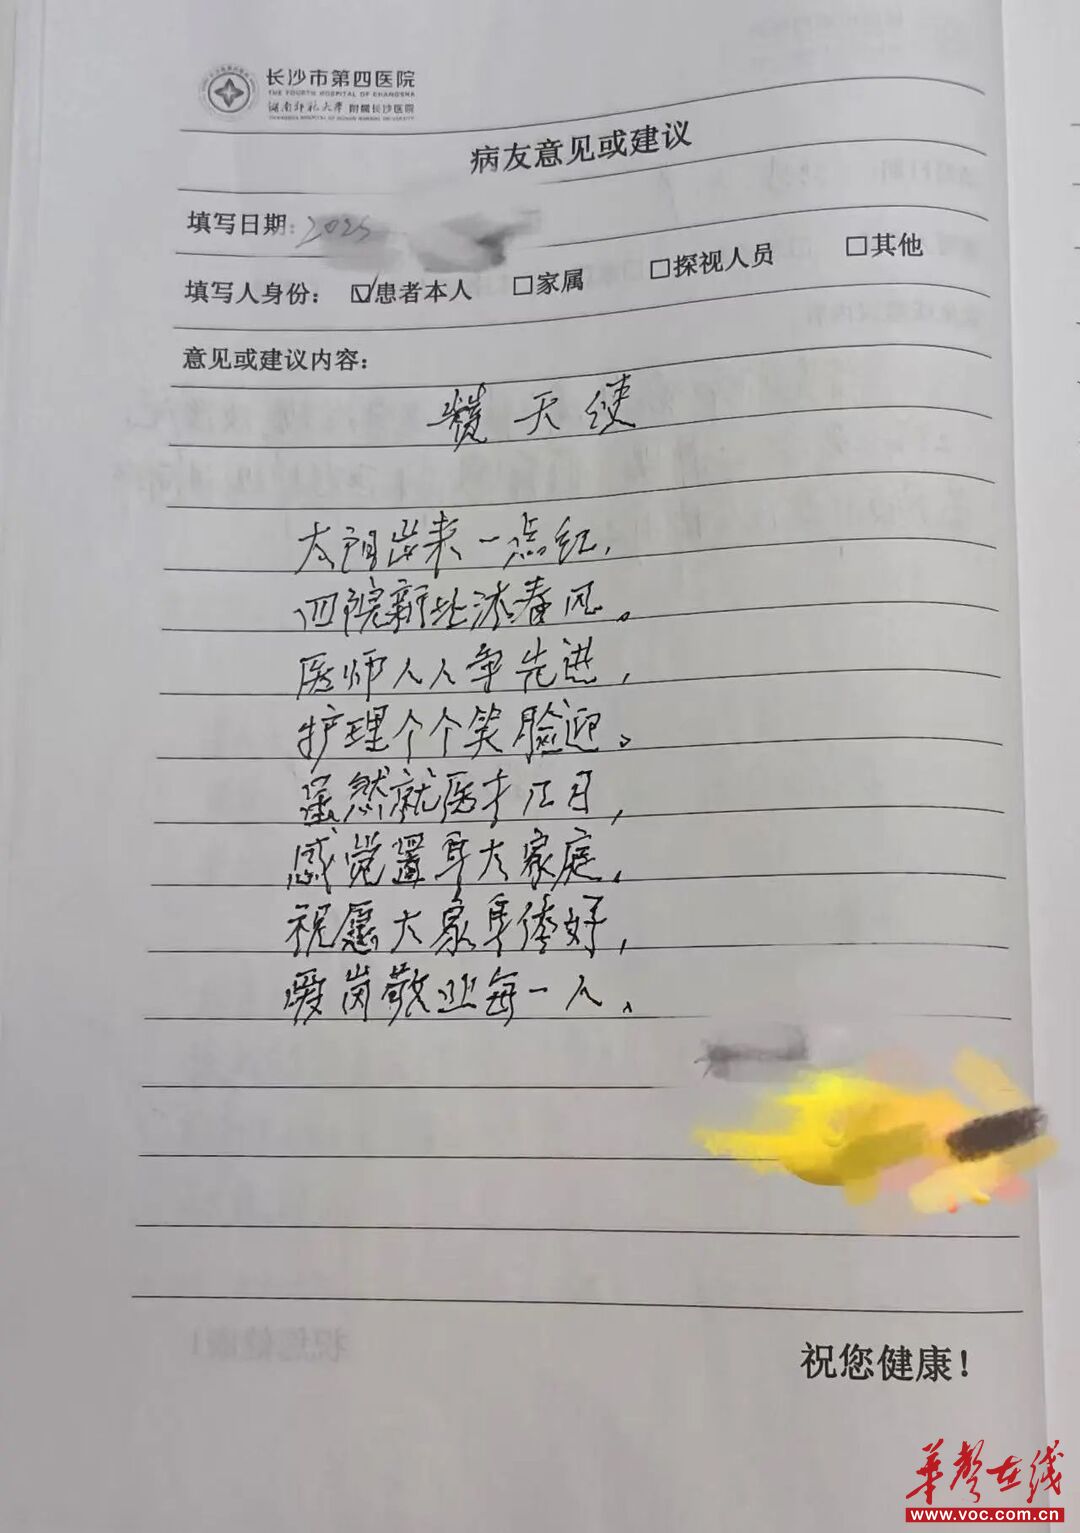 长沙市第四医院
THE FOURTH HOSPITAL OF CHANGSHA
湖南师范大学 附属长沙医院
CHANGSHA HOSPITAL OF HUNAN NORMAL UNIVERSITY
病友意见或建议
填写日期: 2025
填写人身份: ☑患者本人 □家属 □探视人员 □其他
意见或建议内容:
赞天使
太阳出来一点红,
四院新址沐春风。
医师人人争先进,
护理个个笑脸迎。
虽然就医才几日,
感觉置身大家庭,
祝愿大家身体好,
爱岗敬业每一人。
祝您健康!
华声在线
www.voc.com.cn